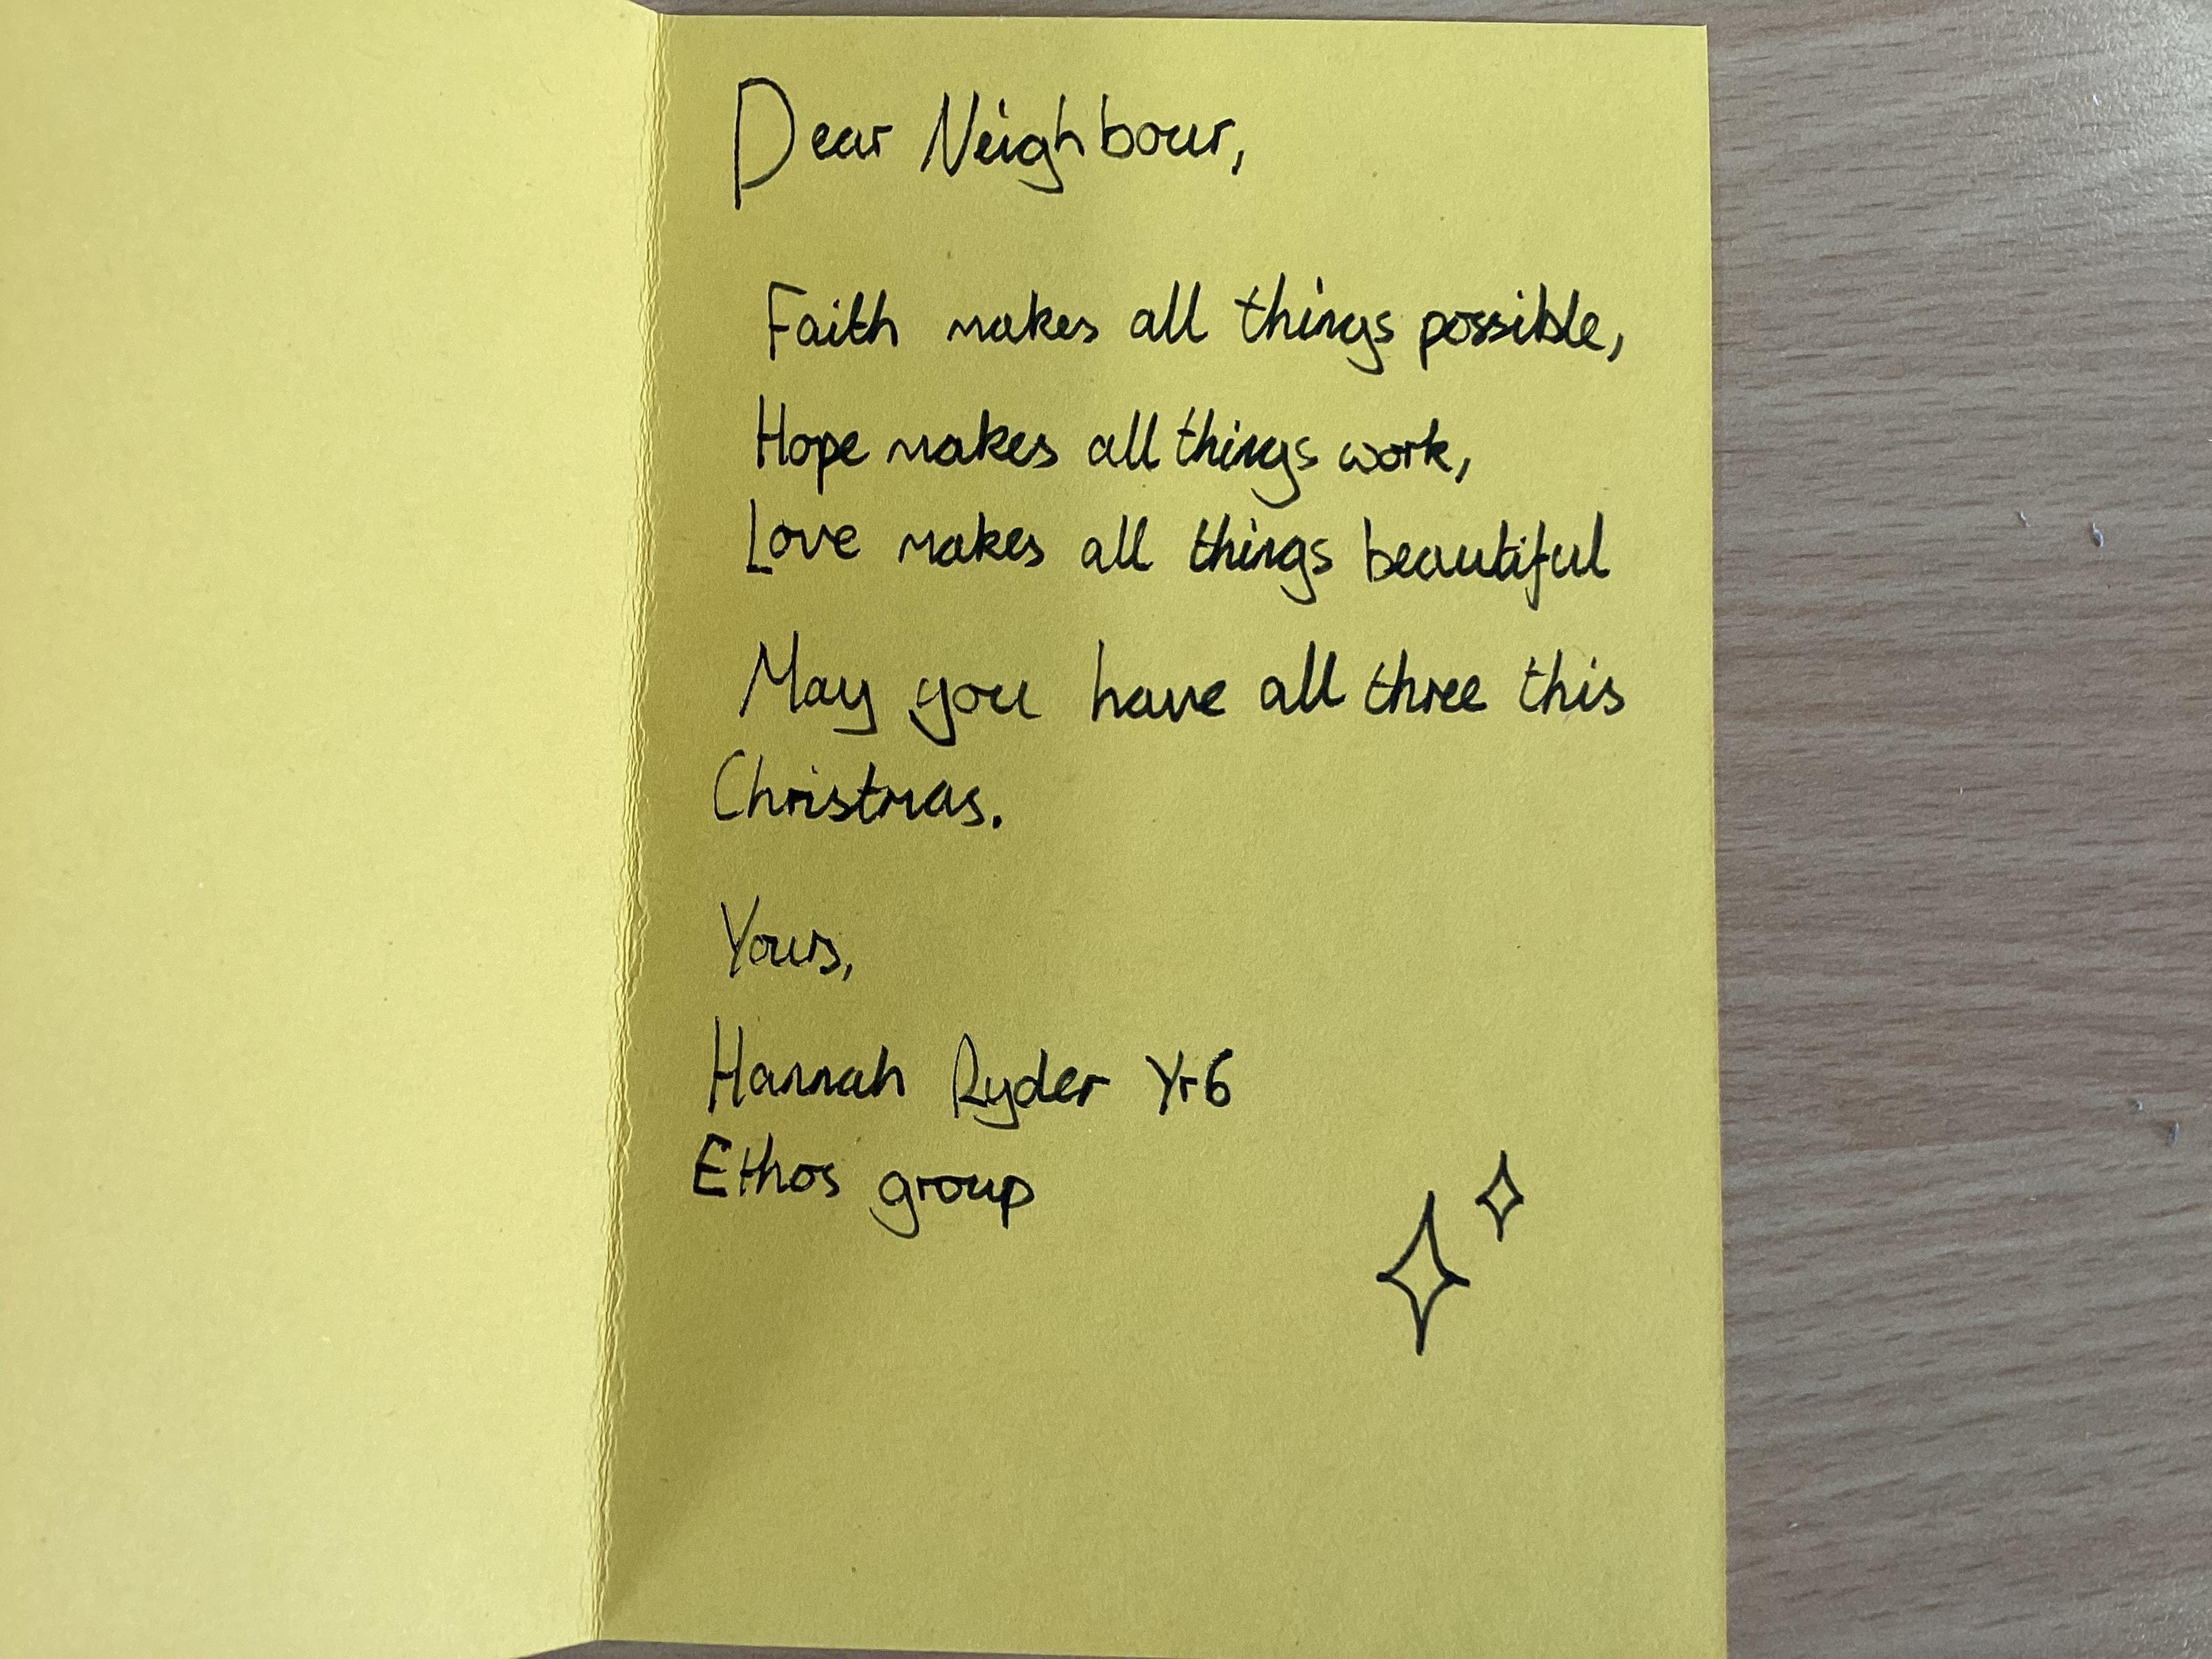 Dear Neighbour,
Faith makes all things possible,
Hope makes all things work,
Love makes all things beautiful
May you have all three this
Christmas.
Yours,
Hannah Ryder Yr6
Ethos group